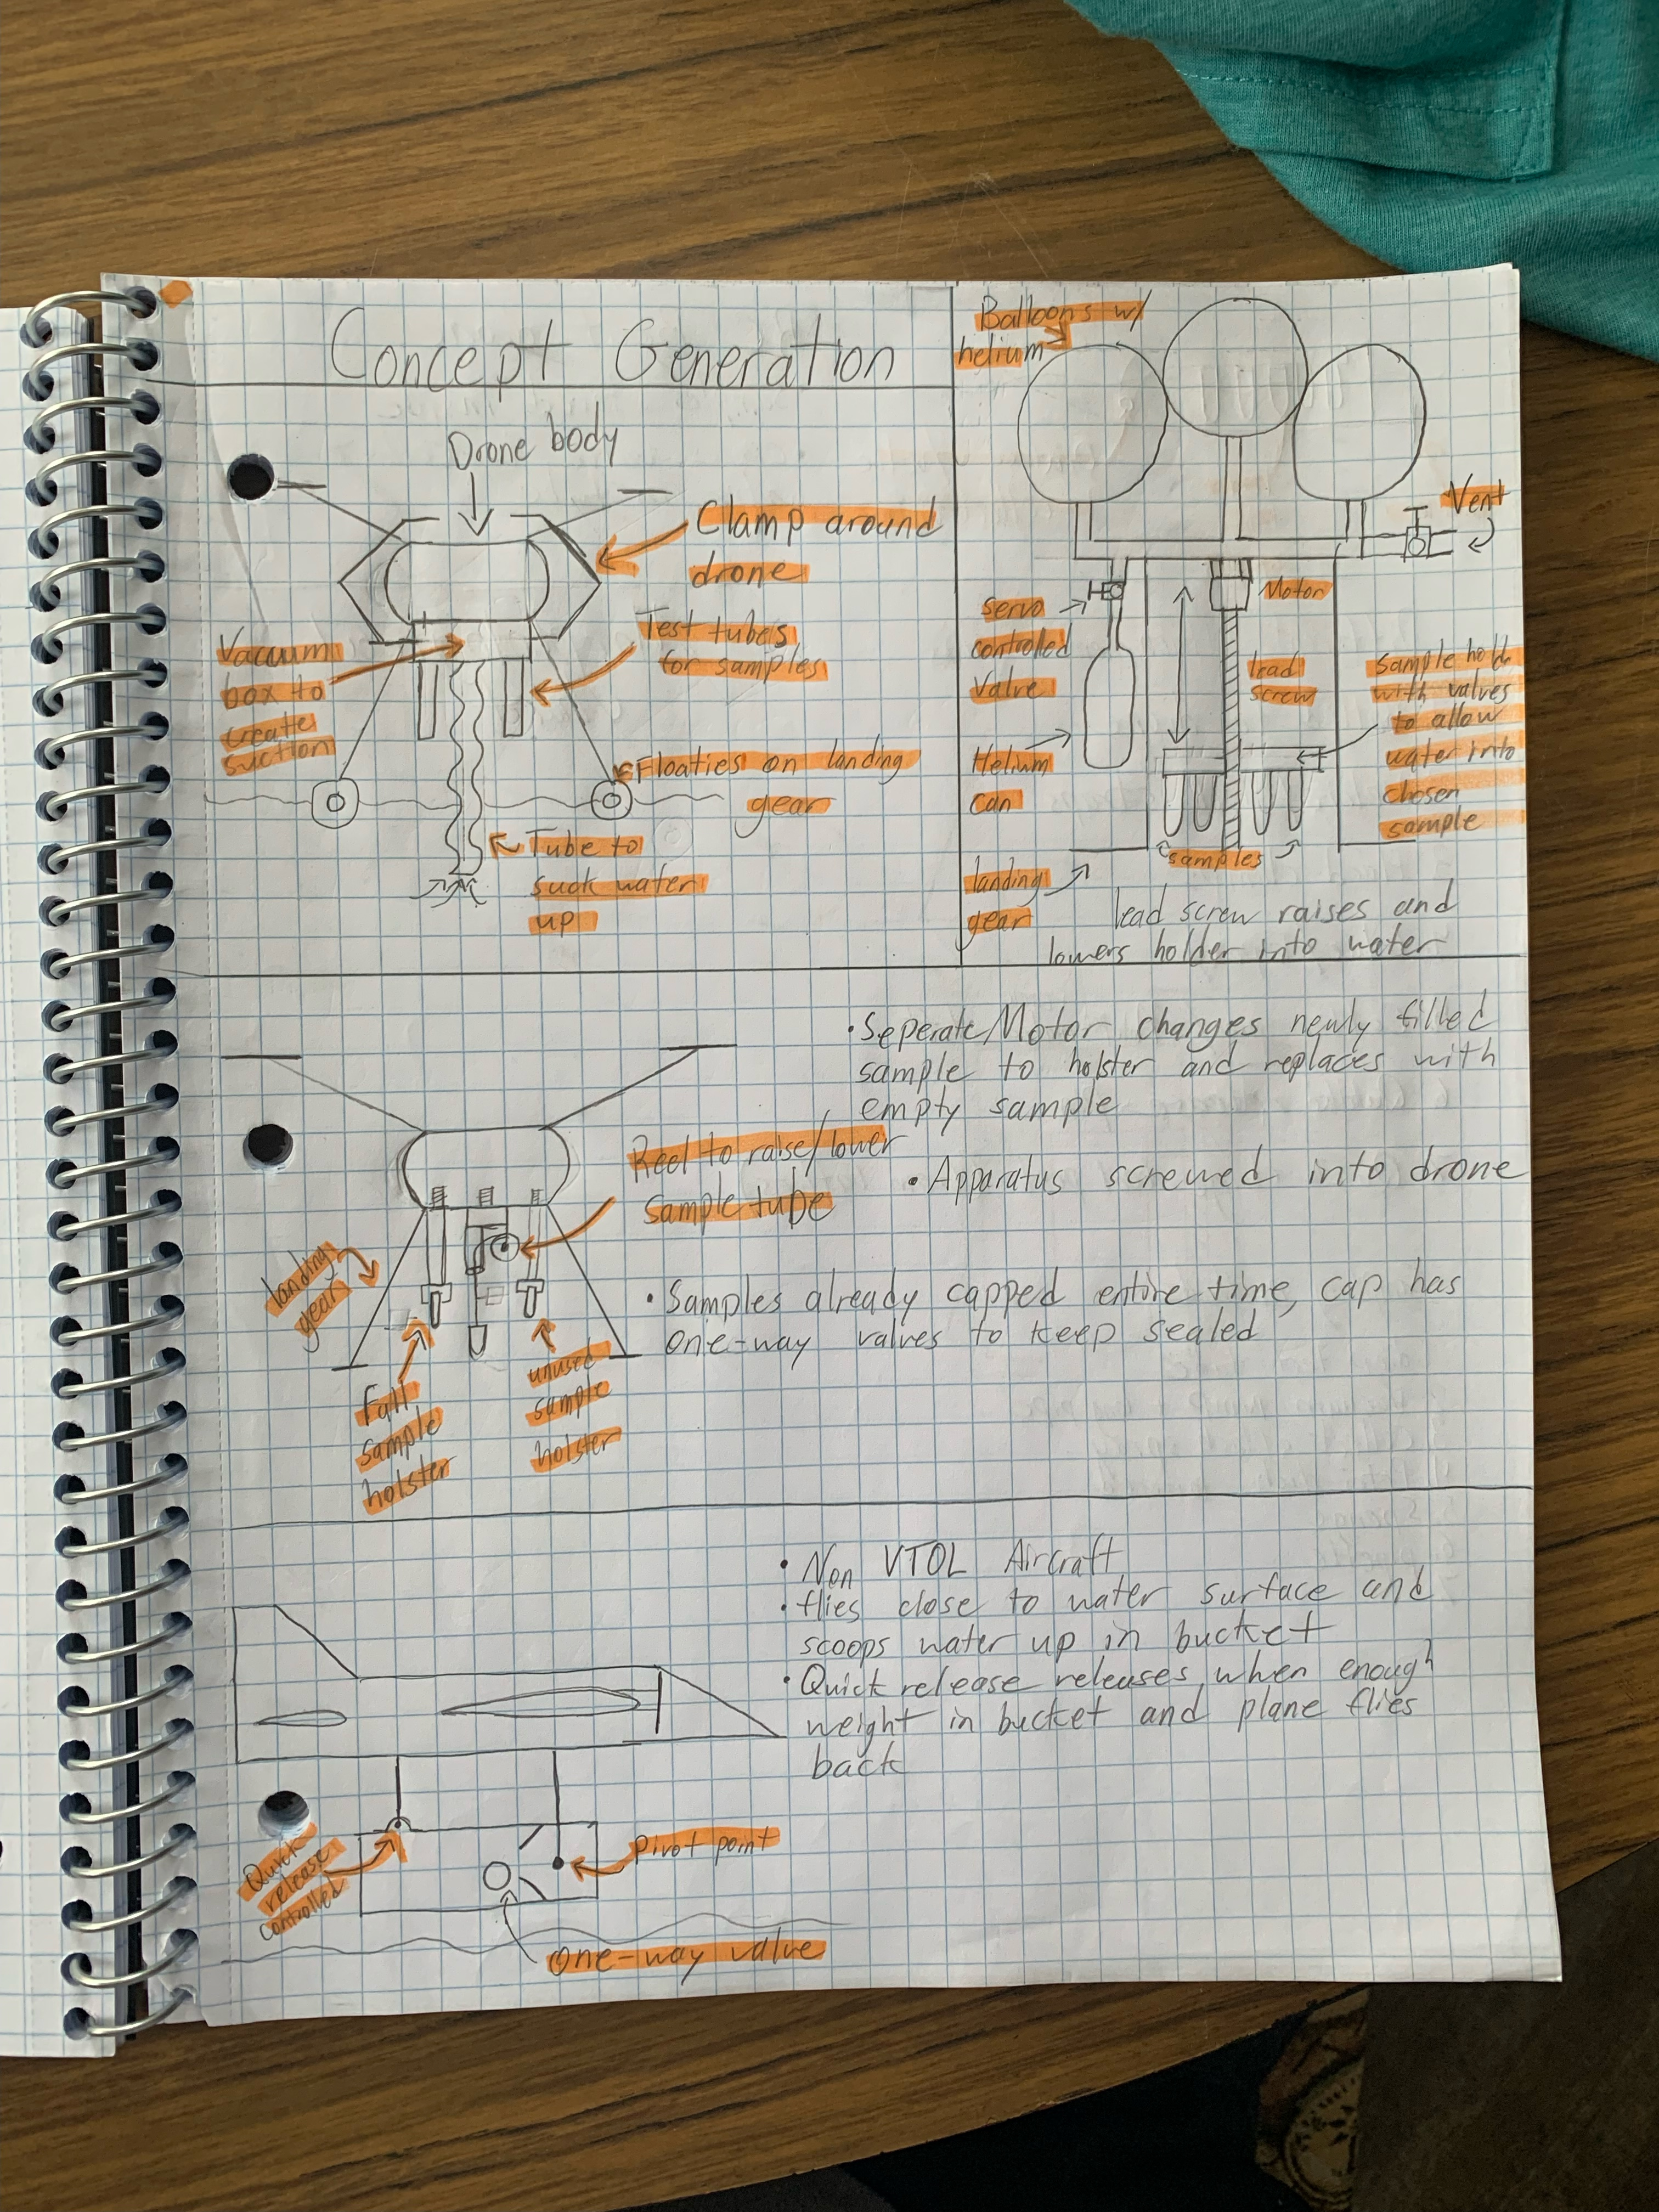 Concept Generation
Drone body
Clamp around
drone
Vacuum
box to
create
suction
Test tubes
for samples
Floaties on landing
gear
Tube to
suck water
up
Balloons w/
helium
Vent
Servo
controlled
valve
Motor
lead
screw
Sample hold
with valves
to allow
water into
chosen
sample
Helium
can
samples
landing
gear
lead screw raises and
lowers holder into water
• Seperate Motor changes newly filled
sample to holster and replaces with
empty sample
Reel to raise/lower
sample tube
• Apparatus screwed into drone
landing
gear
• Samples already capped entire time, cap has
one-way valves to keep sealed
Full
sample
holster
unused
sample
holster
• Non VTOL Aircraft
• flies close to water surface and
scoops water up in bucket
• Quick release releases when enough
weight in bucket and plane flies
back
Quick
release
controlled
Pivot point
One-way valve